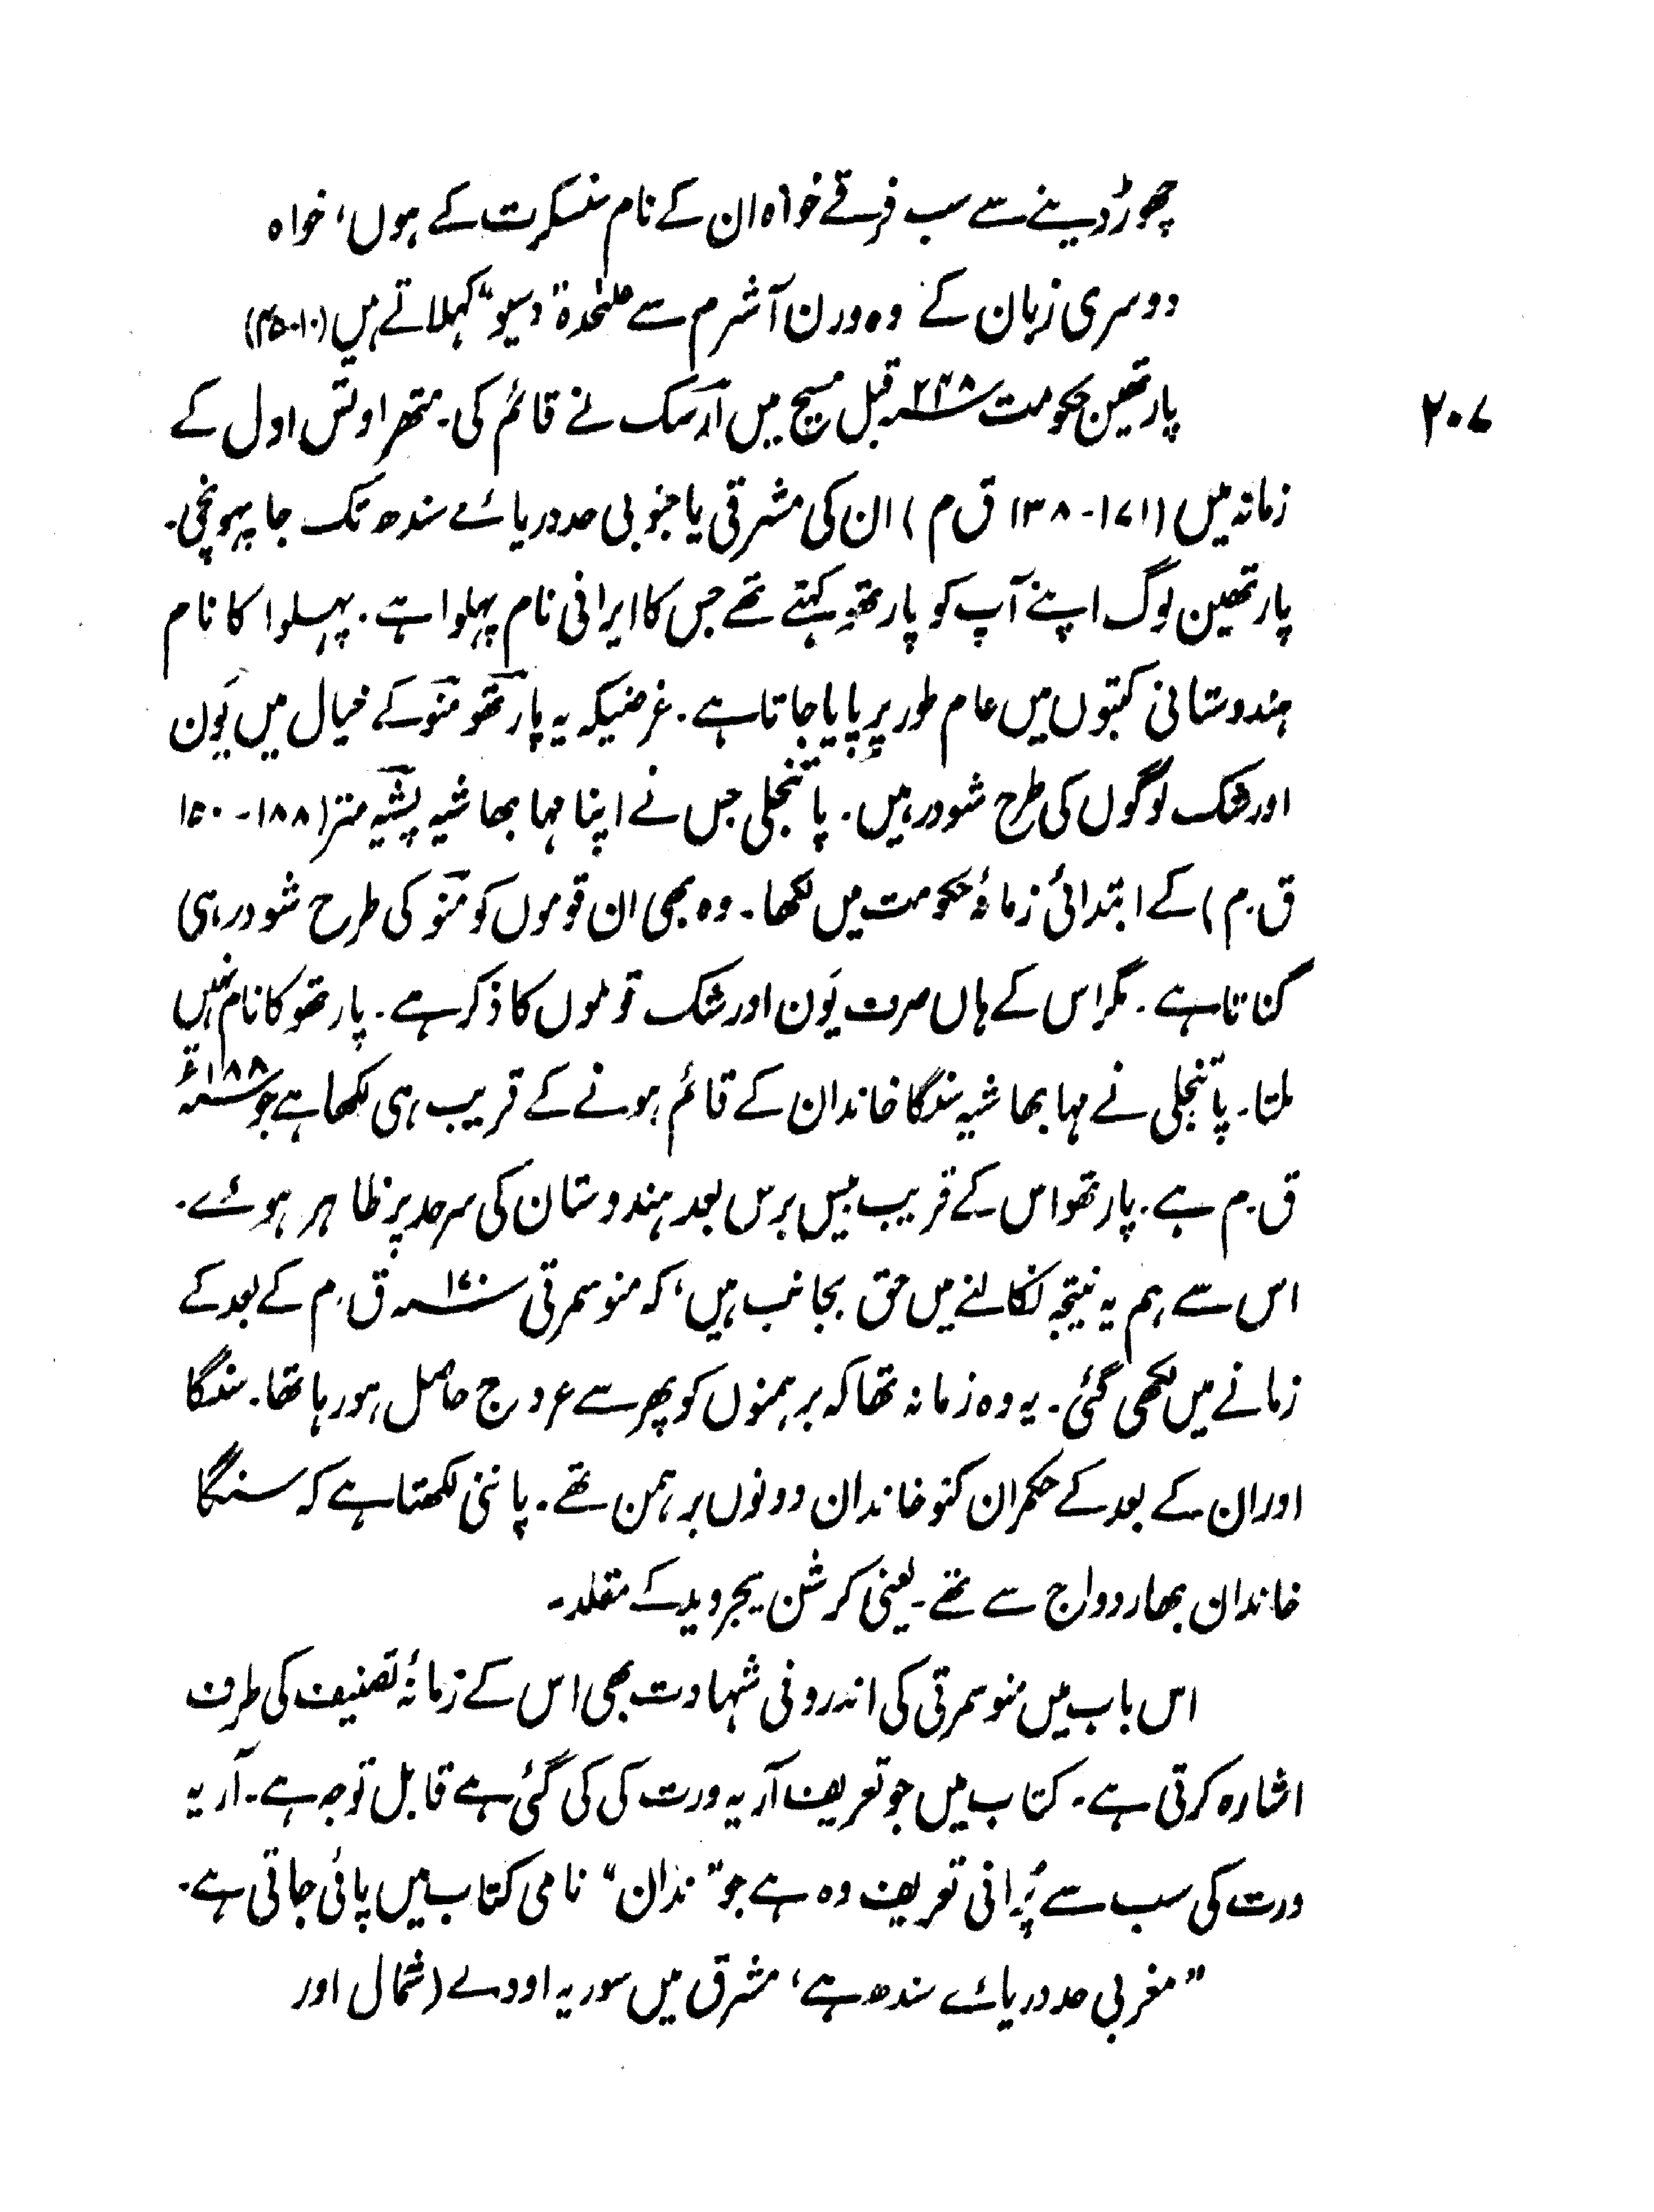 چھوڑ دینے سے سب فرقے خواہ ان کے نام سنسکرت کے ہوں، خواہ
دوسری زبان کے وہ ورن آشرم سے علٰحدہ "دسیو" کہلاتے ہیں (۱۰-۴۵)
۲۰۷
پارتھین حکومت ۲۴۸ قبل مسیح میں اَرَسک نے قائم کی۔ متھراوتس اول کے
زمانہ میں (۱۷۱-۱۳۸ ق م) ان کی مشرقی یا جنوبی حد دریائے سندھ تک جا پہونچی۔
پارتھین لوگ اپنے آپ کو پارتھَوِ کہتے تھے جس کا ایرانی نام پہلوا ہے۔ پہلوا کا نام
ہندوستانی کتبوں میں عام طور پر پایا جاتا ہے۔ غرضیکہ یہ پارتھو منو کے خیال میں یَون
اور شک لوگوں کی طرح شودر ہیں۔ پاتنجلی جس نے اپنا مہا بھاشیہ پشیہ متر (۱۸۸-۱۵۰
ق.م) کے ابتدائی زمانۂ حکومت میں لکھا۔ وہ بھی ان قوموں کو منو کی طرح شودر ہی
گنا تا ہے۔ مگر اس کے ہاں صرف یَون اور شک قوموں کا ذکر ہے۔ پارتھو کا نام نہیں
ملتا۔ پاتنجلی نے مہا بھاشیہ سنگا خاندان کے قائم ہونے کے قریب ہی لکھا ہے جو ۱۸۸ء
ق.م ہے۔ پارتھو اس کے قریب بیس برس بعد ہندوستان کی سرحد پر ظاہر ہوئے۔
اس سے ہم یہ نتیجہ نکالنے میں حق بجانب ہیں، کہ منو سمرتی ۱۷۰ ق.م کے بعد کے
زمانے میں لکھی گئی۔ یہ وہ زمانہ تھا کہ برہمنوں کو پھر سے عروج حاصل ہو رہا تھا۔ سنگا
اور ان کے بعد کے حکمران کنو خاندان دونوں برہمن تھے۔ پاننی لکھتا ہے کہ سنگا
خاندان بھاردواج سے تھے۔ یعنی کرشن یجروید کے مقلد۔
اس باب میں منو سمرتی کی اندرونی شہادت بھی اس کے زمانۂ تصنیف کی طرف
اشارہ کرتی ہے۔ کتاب میں جو تعریف آریہ ورت کی کی گئی ہے قابل توجہ ہے۔ آریہ
ورت کی سب سے پُرانی تعریف وہ ہے جو "ندان" نامی کتاب میں پائی جاتی ہے۔
"مغربی حد دریائے سندھ ہے، مشرق میں سوریہ اودے (شمال اور